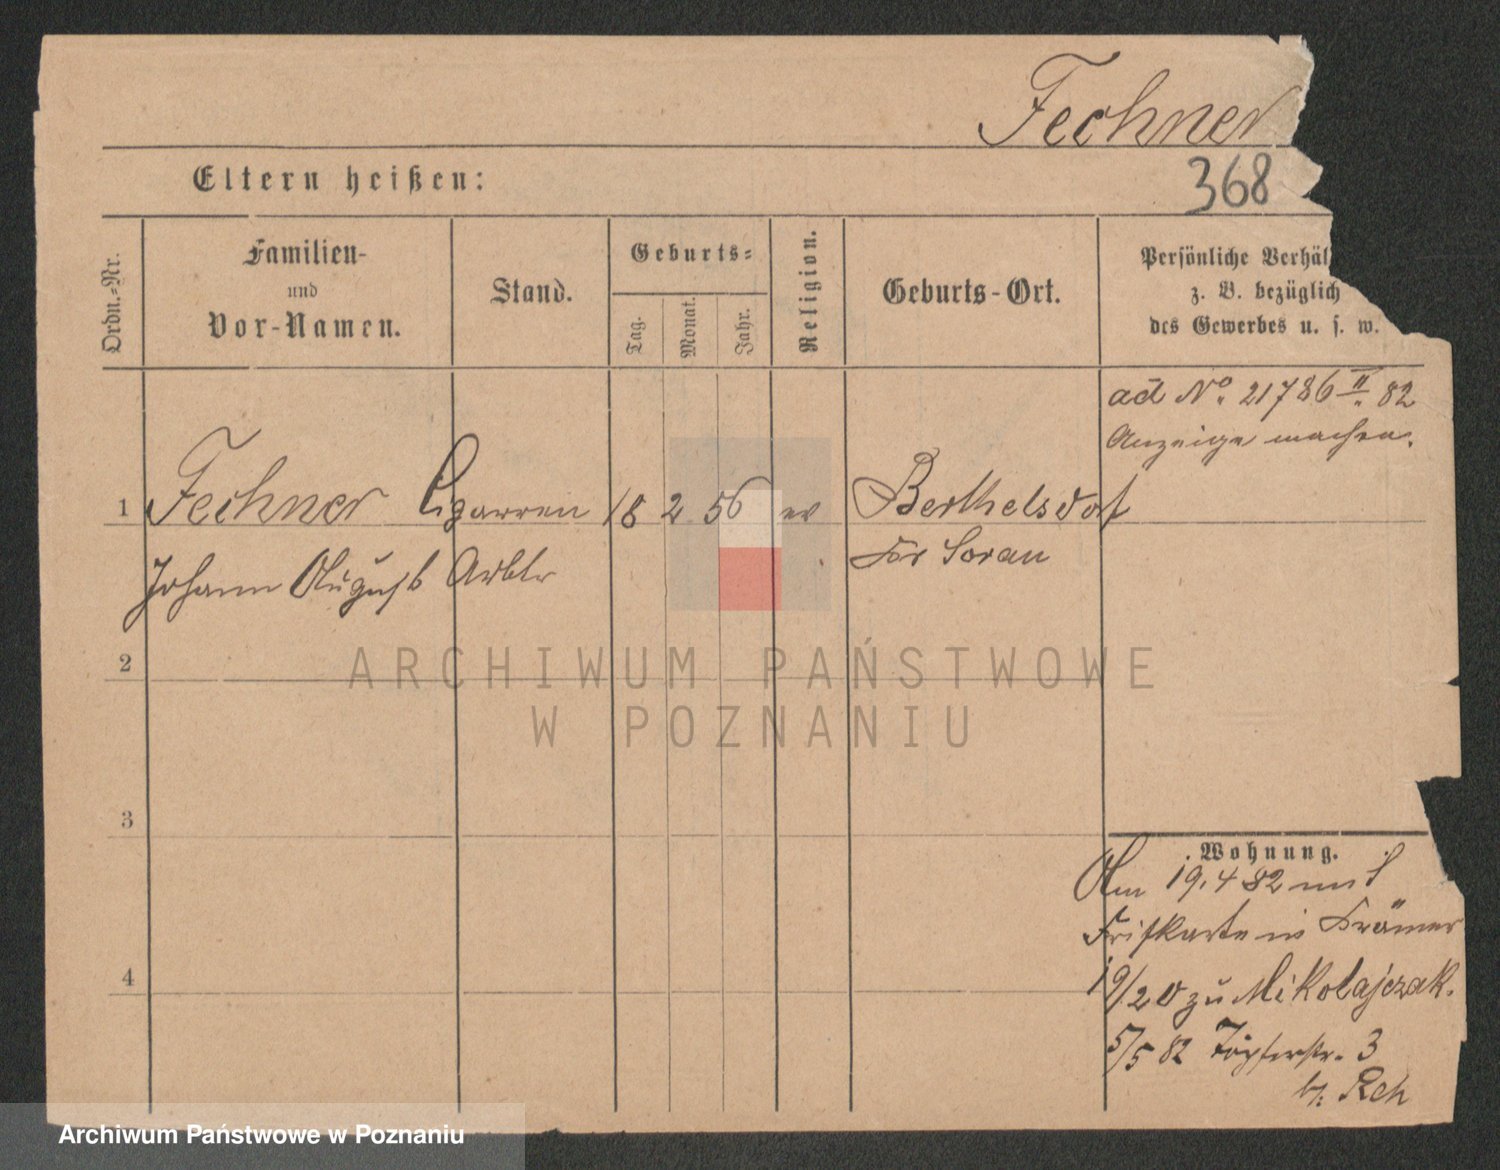 Fechner
368
Eltern heißen:
Ordn.-Nr.
Familien-
und
Vor-Namen.
Stand.
Geburts-
Tag.
Monat.
Jahr.
Religion.
Geburts-Ort.
Persönliche Verhäl
z. B. bezüglich
des Gewerbes u. s. w.
ad No. 21786 II 82
Anzeige machen.
1 Fechner Cigarren 18 2 56 ev Berthelsdorf
Johann August Arbtr Kr Sorau
2
3
4
Wohnung.
Am 19.4 82 mit
in Krämer
19/20 zu Mikolajczak.
5/5 82 Töpferstr. 3
b/.
ARCHIWUM PAŃSTWOWE
W POZNANIU
Archiwum Państwowe w Poznaniu